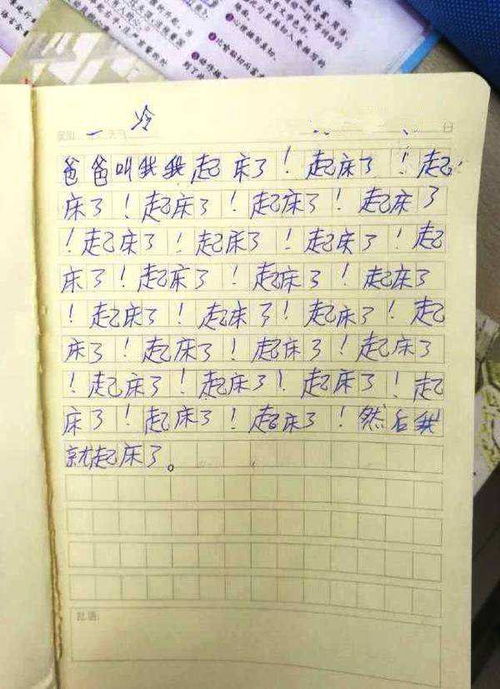 冷
爸爸叫我我起床了！起床了！起
床了！起床了！起床了！起床了
！起床了！起床了！起床了！起
床了！起床了！起床了！起床了
！起床了！起床了！起床了！起
床了！起床了！起床了！起床了
！起床了！起床了！起床了！起
床了！起床了！起床了！然后我
就起床了。
批语: